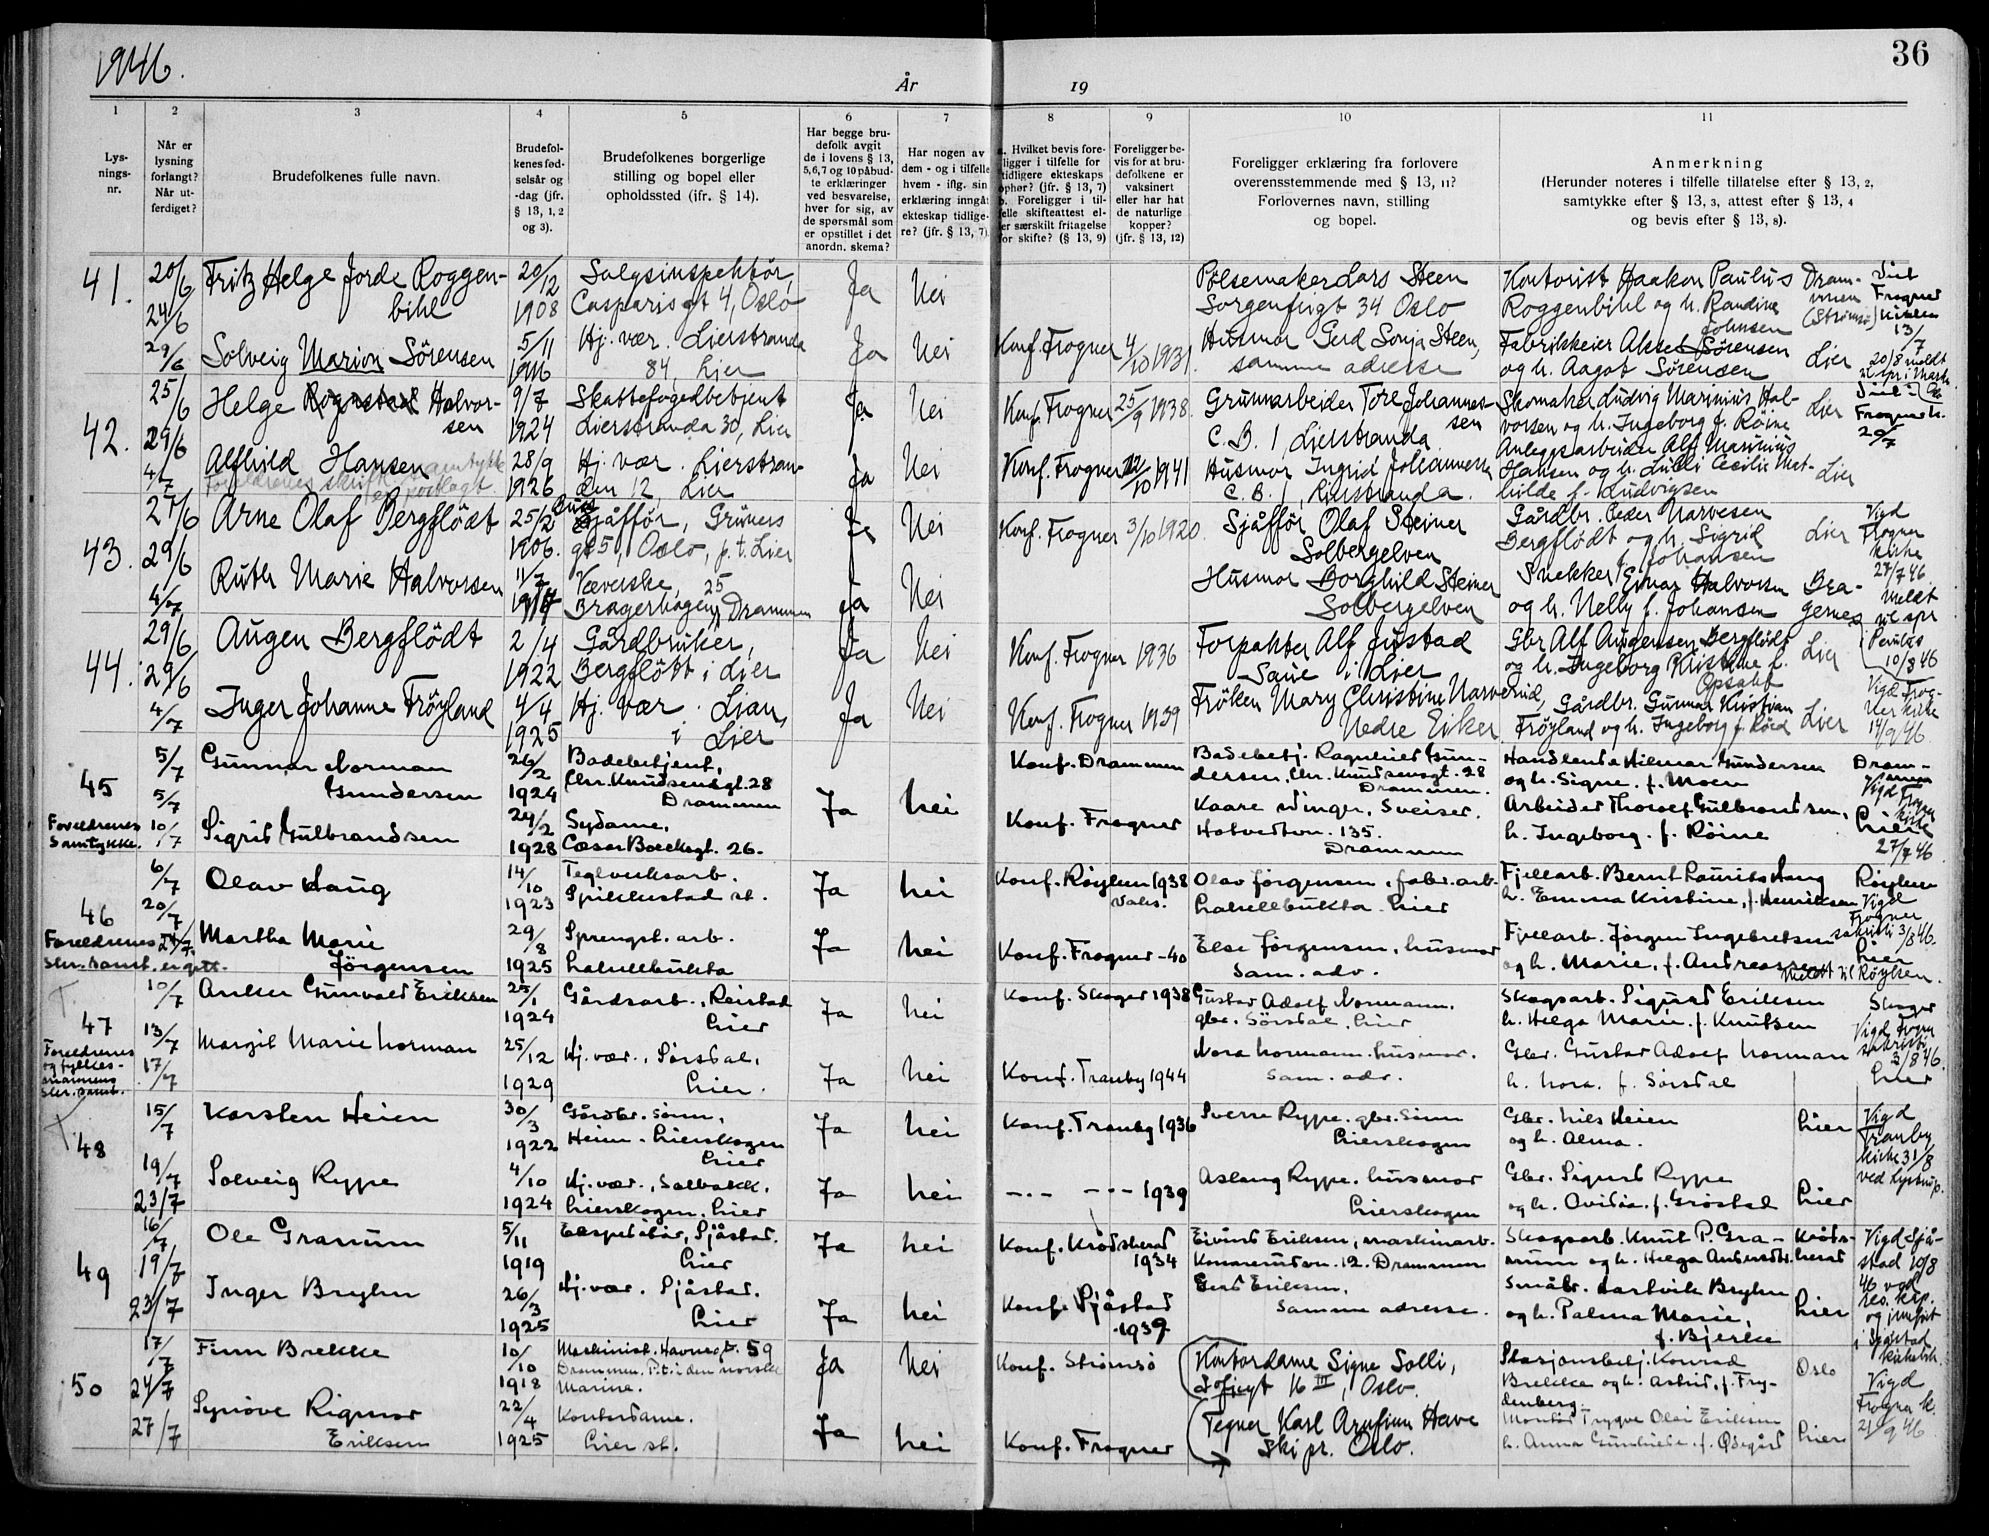 1946.
År
19
36
1
2
3
4
5
6
7
8
9
10
11
Lys-
nings-
nr.
Når er
lysning
forlangt?
Når ut-
ferdiget?
Brudefolkenes fulle navn.
Brudefol-
kenes fød-
selsår og
-dag (jfr.
§ 13, 1, 2
og 3).
Brudefolkenes borgerlige
stilling og bopel eller
opholdssted (ifr. § 14).
Har begge bru-
defolk avgit
de i lovens § 13,
5,6,7 og 10 påbud-
te erklæringer
ved besvarelse,
hver for sig, av
de spørsmål som
er opstillet i det
anordn. skema?
Har nogen av
dem - og i tilfelle
hvem - iflg. sin
erklæring inngåt
ekteskap tidlige-
re? (jfr. § 13, 7).
a. Hvilket bevis fore-
ligger i tilfelle for
tidligere ekteskaps
ophør? (jfr. § 13, 7)
b. Foreligger i til-
felle skifteattest el-
er særskilt fritagelse
for skifte? (§ 13, 9)
Foreligger be-
vis for at bru-
defolkene er
vaksinert
eller har hat
de naturlige
kopper?
(jfr. § 13, 12)
Foreligger erklæring fra forlovere
overensstemmende med § 13, 11?
Forlovernes navn, stilling
og bopel.
Anmerkning
(Herunder noteres i tilfelle tillatelse efter § 13, 2,
samtykke efter § 13, 3, attest efter § 13, 4
og bevis efter § 13, 8).
41.
20/6
24/6
29/6
Fritz Helge Jorde Roggen-
bihl
20/12
1908
Salgsinspektør,
Casparis gt 4, Oslo
Ja
Nei
Pølsemaker Lars Steen
Sorgenfrigt 34 Oslo
Kontorist Haakon Paulus
Roggenbihl og h. Randine
Johnsen
Dram-
men
(Strømsø)
Viet
Frogner
kirken
13/7
Solveig Marion Sørensen
5/11
1916
Hj. vær. Lierstranda
84, Lier
Ja
Nei
Konf. Frogner 4/10 1931.
Husmor Gerd Sonja Steen,
samme adresse
Fabrikkeier Aksel Sørensen
og h. Aagot Sørensen
Lier
20/8 meldt
42.
25/6
29/6
4/7
Helge Halvor-
sen
9/7
1924
Skattefogedbetjent
Lierstranda 30, Lier
Ja
Nei
Konf. Frogner 25/9 1938.
Grunnarbeider Tore Johannes-
sen
C. B. 1, Lierstranda
Skomaker Ludvig Marinius Hal-
vorsen og h. Ingeborg f. Røine
Lier
Frogner k.
20/7
Alfhild Hansen
Foreldrenes skriftl. samtykke
er forelagt
28/9
1926
Hj. vær. Lierstran-
den 12, Lier
Ja
Nei
Konf. Frogner 12/10 1941
Husmor Ingrid Johannesen
C. B. 1, Lierstranda.
Anleggsarbeider Alf Marinius
Hansen og h. Lulli Cecilie Mat-
hilde f. Ludvigsen
Lier
43.
27/6
29/6
4/7
Arne Olaf Bergflødt
25/2
1906.
Sjåffør, Grüners
gt 5, Oslo, p. t. Lier
Ja
Nei
Konf. Frogner 3/10 1920.
Sjåffør Olaf Steiner
Solbergelven
Gårdbr. Peder Narvesen
Bergflødt og h. Sigrid
f. Johansen
Lier
Vigd
Frogner
kirke
27/7 46
meldt
til spr
Ruth Marie Halvorsen
11/7
1917
Væverske,
Bragerhagen 25, Drammen
Ja
Nei
Husmor Borghild Steiner
Solbergelven
Snekker Einar Halvorsen
og h. Nelly f. Johansen
Bra-
gernes
44.
29/6
29/6
4/7
Augen Bergflødt
2/4
1922
Gårdbruker,
Bergflødt i Lier
Ja
Nei
Konf. Frogner 1936
Forpakter Alf Justad
Saue i Lier
Gbr Alf Augensen Bergflødt
og h. Ingeborg Kristine f.
Opsahl
Lier
i Paulus
10/8 46
Inger Johanne Frøyland
4/4
1925
Hj. vær. Lian,
i Lier
Ja
Nei
Konf. Frogner 1939
Frøken Mary Christine Narverud,
Nedre Eiker
Gårdbr. Gunnar Kristian
Frøyland og h. Ingeborg f. Røed
Lier
Vigd Frog-
ner kirke
14/9 46
45
Foreldrenes
Samtykke.
5/7
5/7
10/7
Gunnar Norman
Gundersen
26/2
1924
Badebetjent,
Chr. Knudsensgt. 28
Drammen
Ja
Nei
Konf. Drammen
Badebetj. Ragnhild Gun-
dersen, Chr. Knudsensgt. 28
Drammen.
Handlende Hilmar Gundersen
og h. Signe. f. Moen
Dram-
men
Vigd Frogner
kirke
27/7 46
Sigrid Gulbrandsen
29/2
1928
Sydame,
Cæsar Boecksgt. 26.
Konf. Frogner
Kaare Winger, Sveiser.
Hotvedtvn. 135.
Drammen
Arbeider Thorolf Gulbrandsen,
h. Ingeborg. f. Røine
Lier
46
Foreldrenes
skr. samt. er gitt.
6/7
20/7
24/7
Olav Haug
14/10
1923
Teglverksarb.
Spikkestad st.
Ja
Nei
Konf. Røyken 1938
Vaks.
Olav Jørgensen, fabr.arb.
Lahellbukta. Lier
Fjellarb. Bernt Laurits Haug
h. Emma Kristine, f. Henriksen
Røyken
Vigd
Frogner
sakristi 3/8 46.
Martha Marie
Jørgensen
29/8
1925
Sprengst. arb.
Lahellbukta
Ja
Nei
Konf. Frogner - 40
Else Jørgensen, husmor
Sam. adr.
Fjellarb. Jørgen Ingebretsen
og h. Marie, f. Andreassen
Lier
Meldt til Røyken.
47
Foreldrenes
og fylkes-
mannens
skr. samt.
10/7
13/7
17/7
Anker Gunvald Eriksen
25/1
1924
Gårdsarb., Reistad
Lier
Ja
Nei
Konf. Skoger 1938
Gustav Adolf Normann.
gbr. Sørsdal, Lier
Skogsarb. Sigurd Eriksen
h. Helga Marie. f. Knutsen
Skoger
Vigd Frogner
sakristi
3/8 46.
Margit Marie Norman
25/12
1929
Hj. vær., Sørsdal,
Lier.
Ja
Nei
Konf. Tranby 1944
Nora Normann. husmor.
Sam. adr.
Gbr. Gustav Adolf Norman
h. Nora. f. Sørsdal
Lier
48
15/7
19/7
23/7
Karsten Heien
30/3
1922
Gårdbr. sønn,
Heien. Lierskogen
Lier
Ja
Nei
Konf. Tranby 1936
Sverre Rype. gbr. sønn
Lierskogen
Gbr. Nils Heien
og h. Alma.
Lier
Vigd
Tranby
kirke 31/8
ved Lystrup.
Solveig Rype
4/10
1924
Hj. vær., Solbakk.
Lierskogen. Lier
Ja
Nei
-.- -.- 1939
Aslaug Rype. husmor
Lierskogen
Gbr. Sigurd Rype
og h. Ovidia. f. Grøstad
Lier
49
16/7
19/7
23/7
Ole Granum
5/11
1919
Ekspeditør, Sjåstad.
Lier
Ja
Nei
Konf. Krødsherad
1934
Eivind Eriksen, maskinarb.
Konnerudvn. 12. Drammen
Skogsarb. Knut P. Gra-
num og h. Helga Andersdtr.
Krøds-
herad
Vigd Sjå-
stad 10/8
46 ved
res. kap.
og innført
i Sjåstad
kirkebk.
Inger Brylin
26/3
1925
Hj. vær. Sjåstad.
Lier
Ja
Nei
Konf. Sjåstad
1939
Gerd Eriksen.
Samme adresse.
Småbr. Hartvik Brylin
og h. Palma Marie,
f. Bjerke
Lier
50
17/7
24/7
27/7
Finn Brekke
10/10
1918
Maskinist. Havnegt. 59
Drammen. P.t. i den norske
Marine.
Ja
Nei
Konf. Strømsø
Kontordame Signe Solli,
Sofiegt 16 III, Oslo.
Stasjonsbetj. Konrad
Brekke og h. Astrid, f. Fry-
denberg
Oslo
Vigd
Frogner k.
21/9 46
Synøve Rigmor
Eriksen
22/4
1925
Kontordame.
Lier st.
Ja
Nei
Konf. Frogner
Tegner Karl Arnfinn Have
Ski pr. Oslo.
Montør Trygve Olai Eriksen
h. Anna Gunhilde. f. Ødegård
Lier